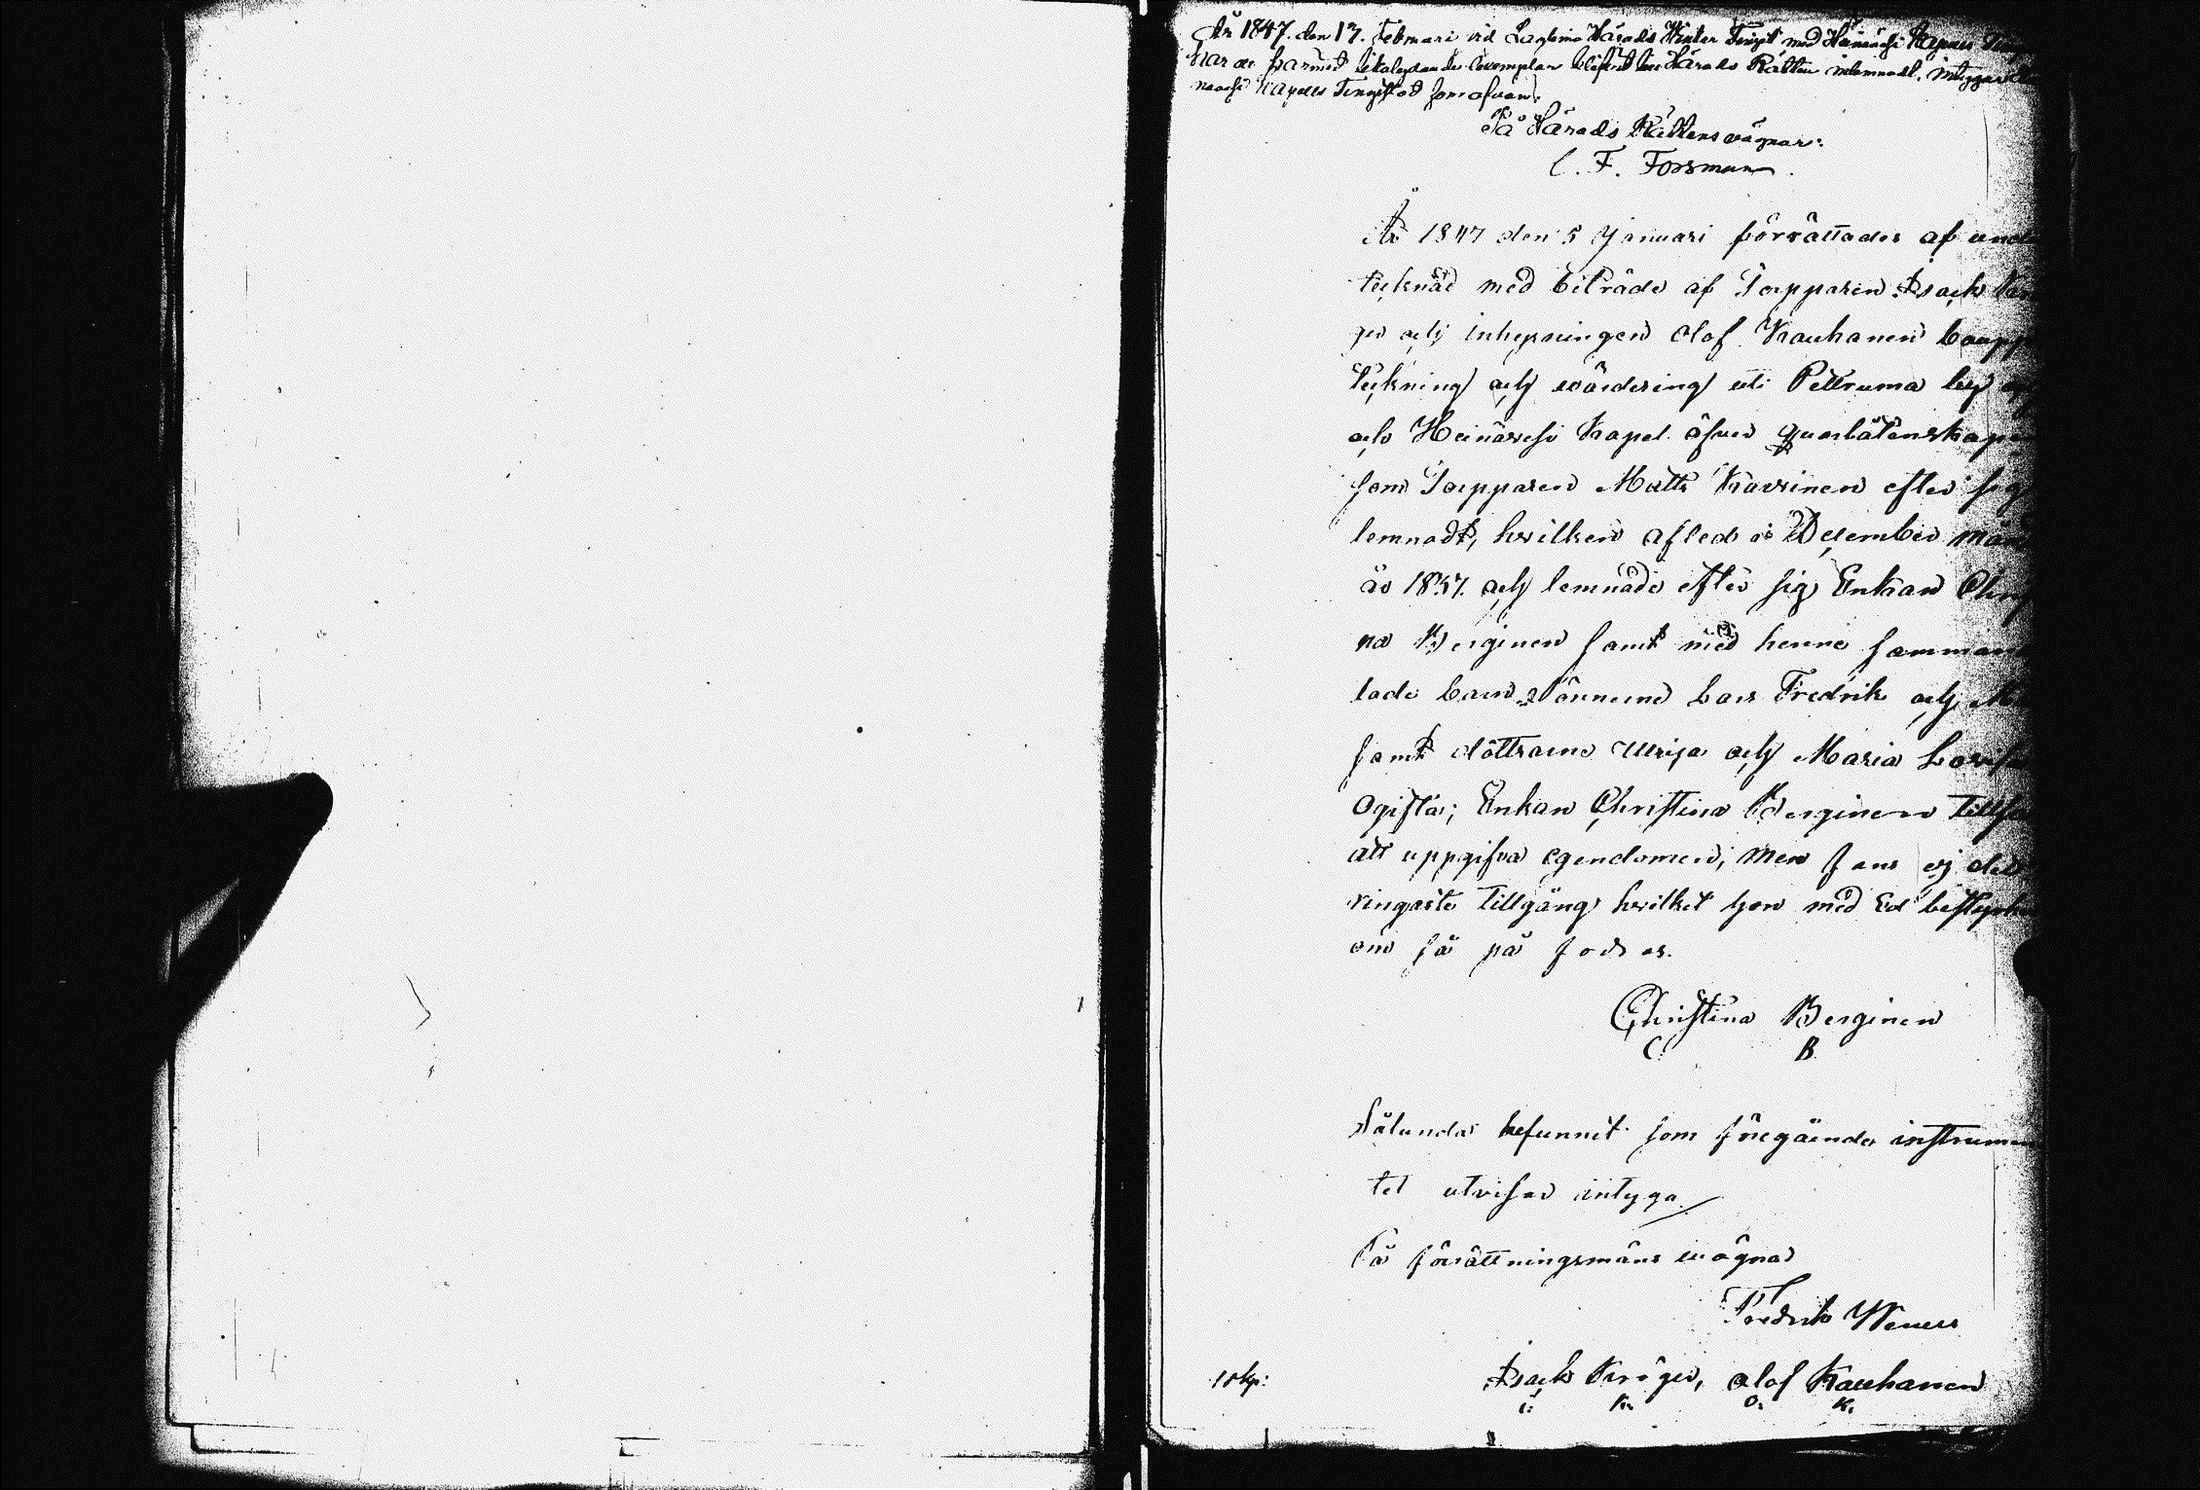 År 1847. den 17. Februari vid Laglina Härads Winter Tinget med Heinävesi Kapells
har ett härmed likalydande exemplar blifvit till Härads Rätten inlemnadt, intygar
Kapells Tingstad som ofvan.
På Härads Rättens vägnar:
C. F. Forsman.
År 1847 den 5 Januari förrättades af unde
tecknad med biträde af Torpparen Isack Krö
ger och inhysningen Olof Kauhanen boupp
teckning och wärdering uti Pettruma by
och Heinävesi Kapel öfver quarlåtenskapen
som Torpparen Matts Kavrinen efter sig
lemnadt, hvilken afled i December månd
år 1837. och lemnade efter sig Enkan Chris
na Berginen samt med henne samman
lade barn Sönnerne Lars Fredrik och
samt döttrarne Ulrika och Maria Lovisa
Ogifta; Enkan Christina Berginen tills
att uppgifva egendomen; men fans ej det
ringaste tillgång hvilket hon med Ed bestyrk
om så på fodras.
Christina Berginen
C B
Sålunda befunnit som föregående instrumen
tet utvisar intyga
På förrättningsmäns wägnar
Fredrik
Isack Kröger, Olof Kauhanen
I: K: O: K:
10 kp: